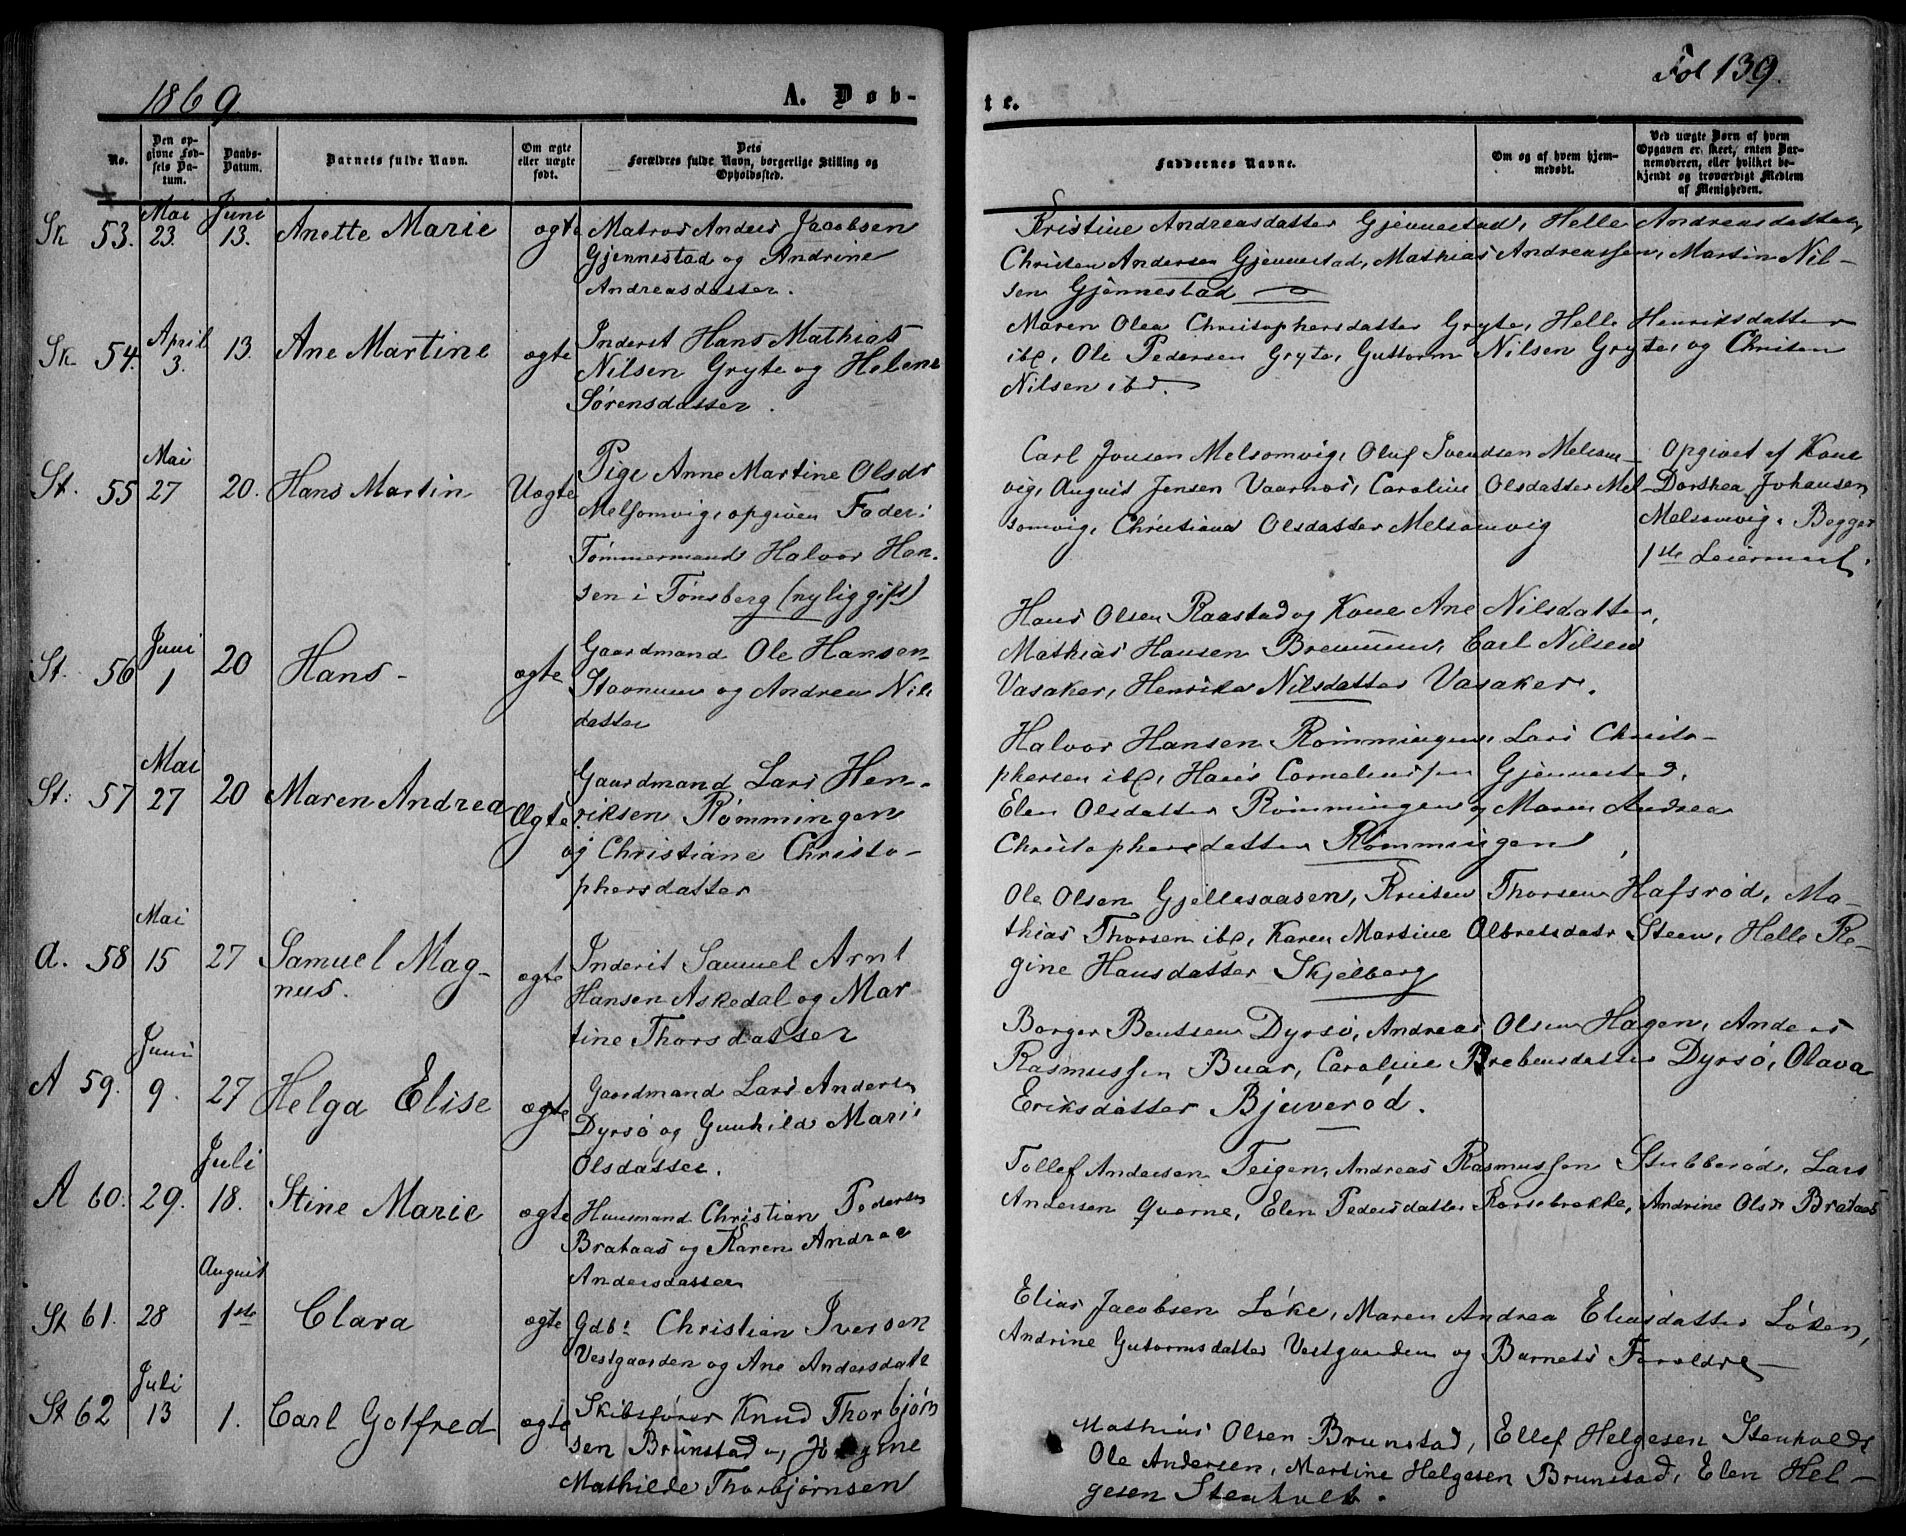 1869.
A. Døb-
No.
Den op-
givne Fød-
sels Da-
tum.
Daabs-
Datum.
Barnets fulde Navn.
Om ægte
eller uægte
født.
Dets
Forældres fulde Navn, borgerlige Stilling og
Opholdssted.
Sk 53. Mai 23. Juni 13. Anette Marie ægte Matros Anders Jacobsen
Gjennestad og Andrine
Andreasdatter.
Sk 54. April 3. 13. Ane Martine ægte Inderst Hans Mathias
Nilsen Gryte og Helene
Sørensdatter.
St. 55 Mai 27 20. Hans Martin Uægte Pige Anne Martine Olsdr
Melsomvig, opgiven Fader:
Tømmermand Halvor Han-
sen i Tønsberg (nylig gift)
St. 56 Juni 1 20 Hans - ægte Gaardmand Ole Hansen
Stavnum og Andrea Nils
datter
St: 57 Mai 27 20 Maren Andrea Ægte Gaardmand Lars Hen-
riksen Rømmingen
og Christiane Christo-
phersdatter
A. 58 Mai 15 27 Samuel Mag-
nus. ægte Inderst Samuel Arnt
Hansen Askedal og Mar
tine Thorsdatter
A 59. Juni 9. 27 Helga Elise ægte Gaardmand Lars Andersen
Dyrsø og Gunhild Marie
Olsdatter.
A 60. 29. Juli 18. Stine Marie ægte Huusmand Christian Pedersen
Brataas og Karen Andrea
Andersdatter
St 61. 28 August 1ste Clara ægte Gdbr Christian Iversen
Vestgaarden og Ane Andersdatt
St 62 Juli 13 1. Carl Gotfred ægte Skibsfører Knud Thorbjørn
sen Brunstad og Jørgine
Mathilde Thorbjørnsen
Fol 139.
te.
Faddernes Navne.
Om og af hvem hjem-
medøbt.
Ved uægte Børn af hvem
Opgaven er skeet, enten Bar-
nemoderen, eller hvilket be-
kjendt og troværdigt Medlem
af Menigheden.
Kristine Andreasdatter Gjennestad, Helle Andreasdatter,
Christen Andersen Gjennestad, Mathias Andreassen, Martin Nil-
sen Gjennestad
Maren Olea Christophersdatter Gryte, Helle Henriksdatter
ibd, Ole Pedersen Gryte, Guttorm Nilsen Gryte, og Christen
Nilsen ibd.
Carl Jonsen Melsomvig, Oluf Svendsen Melsom-
vig, August Jensen Vaarnes, Caroline Olsdatter Mel-
somvig, Christiane Olsdatter Melsomvig
Opgivet af Kone
Dorthea Johansen
Melsomvig. Begges
1ste Leiermaal.
Hans Olsen Raastad og Kone Ane Nilsdatter,
Mathias Hansen Bremnum, Carl Nilsen
Vasaker, Henrikke Nilsdatter Vasaker.
Halvor Hansen Rømmingen, Lars Christo-
phersen ibd, Hans Corneliussen Gjennestad,
Elen Olsdatter Rømmingen og Maren Andrea
Christophersdatter Rømmingen
Ole Olsen Gjellesaasen, Kristen Thorsen Hafsrød, Ma-
thias Thorsen ibd, Karen Martine Olbretsdatr Steen, Helle Re-
gine Hansdatter Skjelberg
Borger Bentsen Dyrsø, Andreas Olsen Hagen, Anders
Rasmussen Buar, Caroline Brebensdatter Dyrsø, Olava
Eriksdatter Bjuverød.
Tollef Andersen Teigen, Andreas Rasmussen Stubberød, Lars
Andersen Qverne, Elen Pedersdatter Korsebrekke, Andrine Olsdr Brataas
Elias Jacobsen Løke, Maren Andrea Eliasdatter Løken,
Andrine Gutormsdatter Vestgaarden og Barnets Forældre
Mathias Olsen Brunstad, Ellef Helgesen Stenholdt
Ole Andersen, Martine Helgesen Brunstad, Elen Hel-
gesen Stenholt.